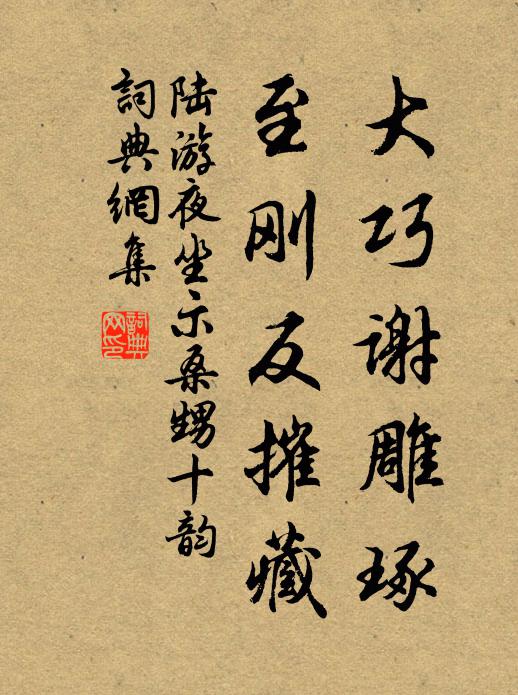 大巧谢雕琢
至刚反摧藏
陆游夜坐示桑甥十韵
詞典網集
詞典
网印